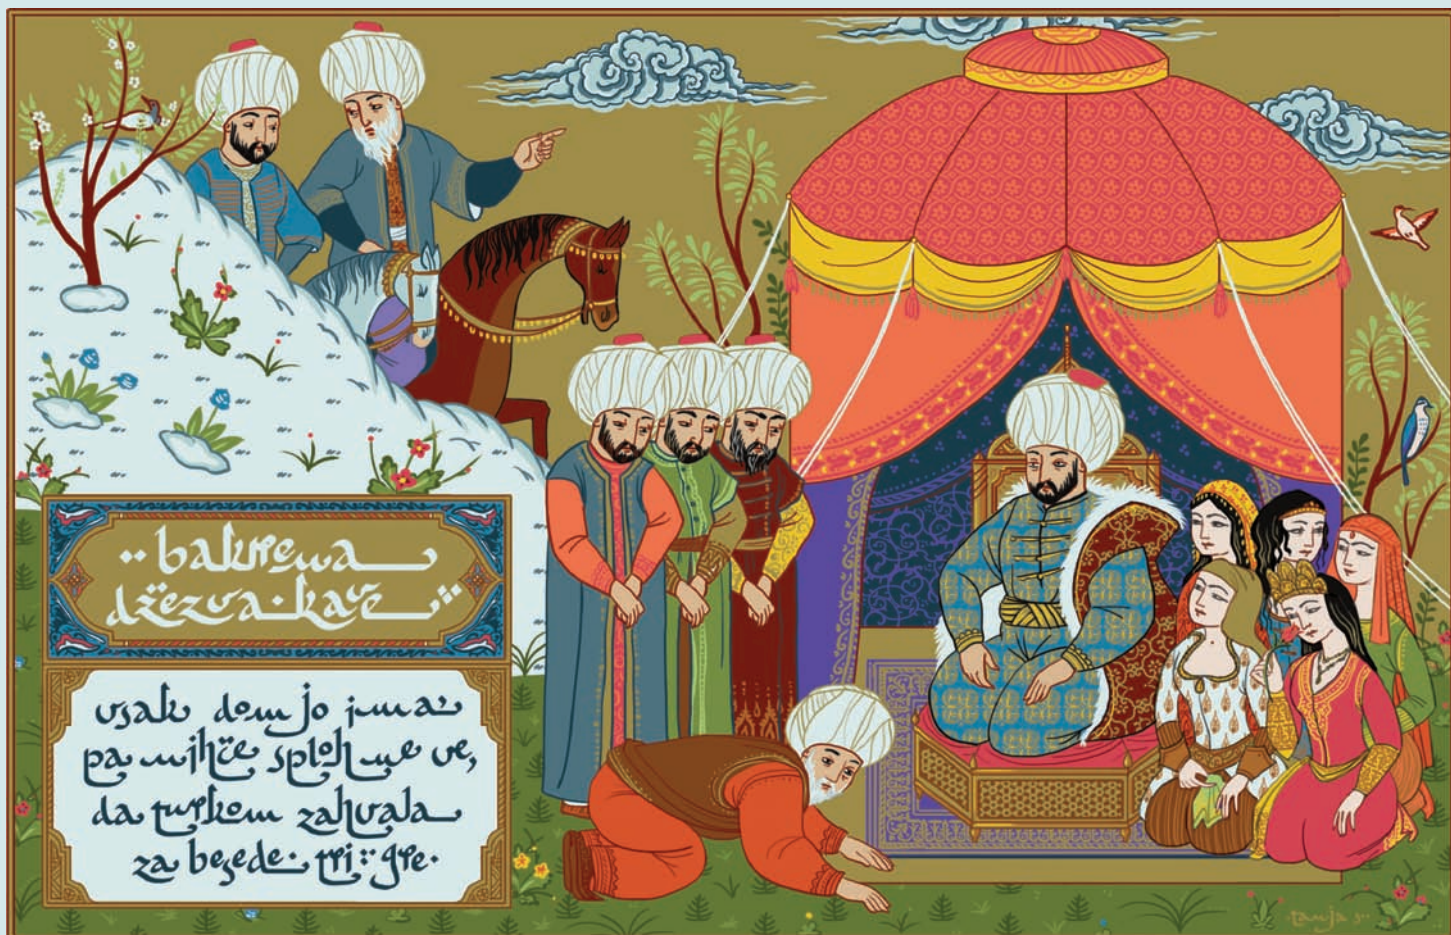 bakrena
džezva · kave
vsak dom jo ima
pa nihče sploh ne ve,
da turkom zahvala
za besede · tri : gre ·
tanja